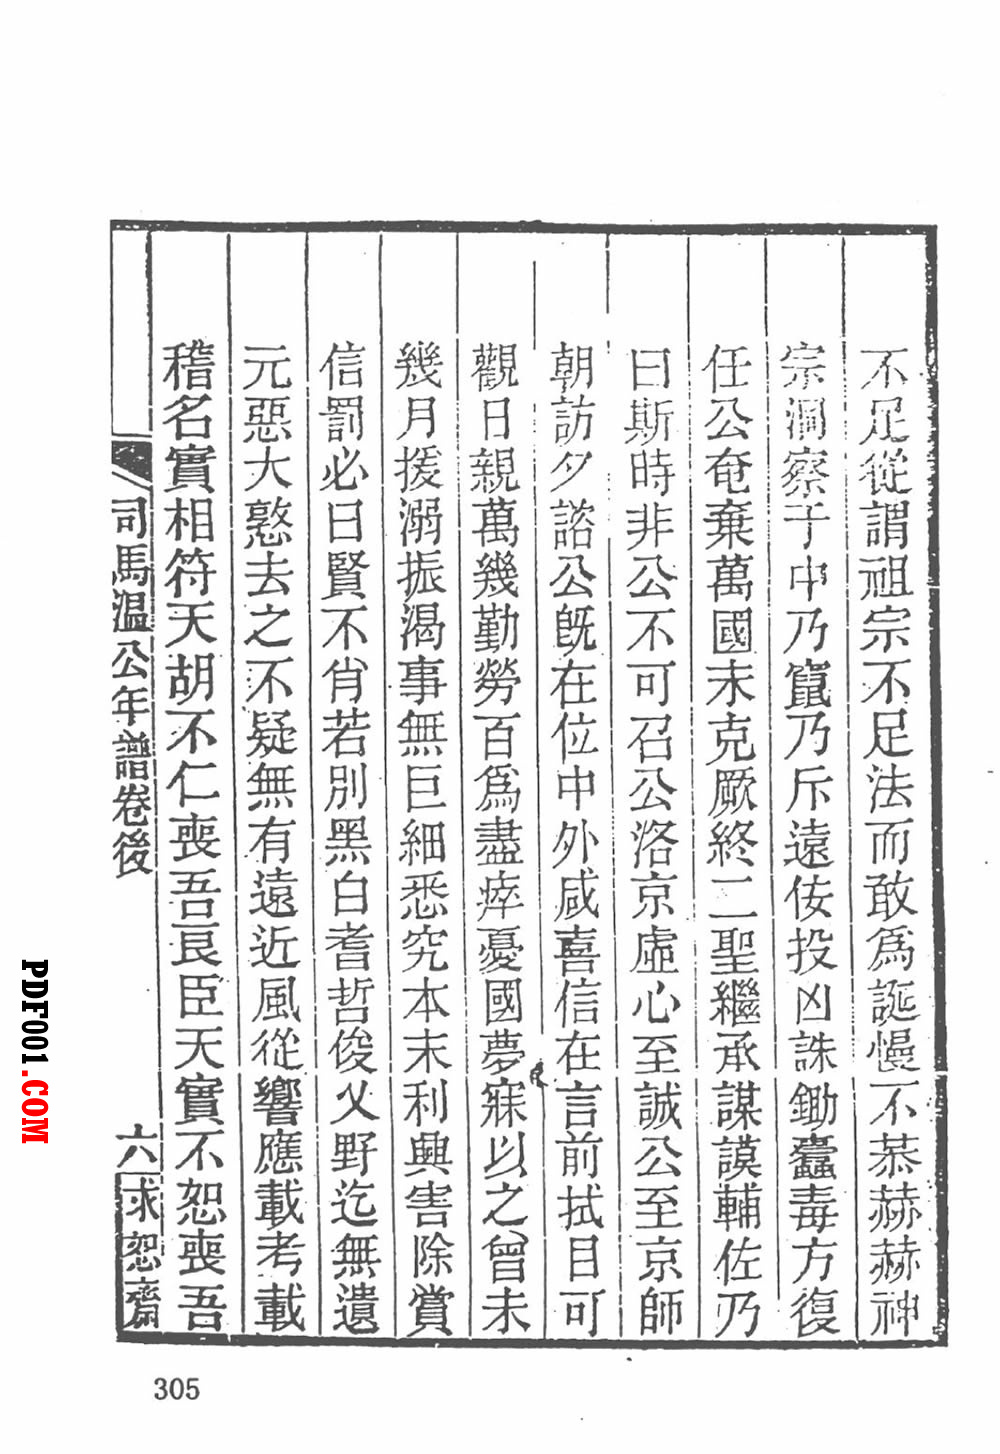 不足從謂祖宗不足法而敢爲誕慢不恭赫赫神
宗洞察于中乃竄乃斥遠佞投凶誅鋤蠹毒方復
任公奄棄萬國未克厥終二聖繼承謀謨輔佐乃
曰斯時非公不可召公洛京虛心至誠公至京師
朝訪夕諮公旣在位中外咸喜信在言前拭目可
觀日親萬幾勤勞百爲盡瘁憂國夢寐以之曾未
幾月援溺振渴事無巨細悉究本末利興害除賞
信罰必曰賢不肖若別黑白耆哲俊乂野迄無遺
元惡大憝去之不疑無有遠近風從響應載考載
稽名實相符天胡不仁喪吾良臣天實不恕喪吾
司馬溫公年譜卷後
六
求恕齋
305
PDF001.COM